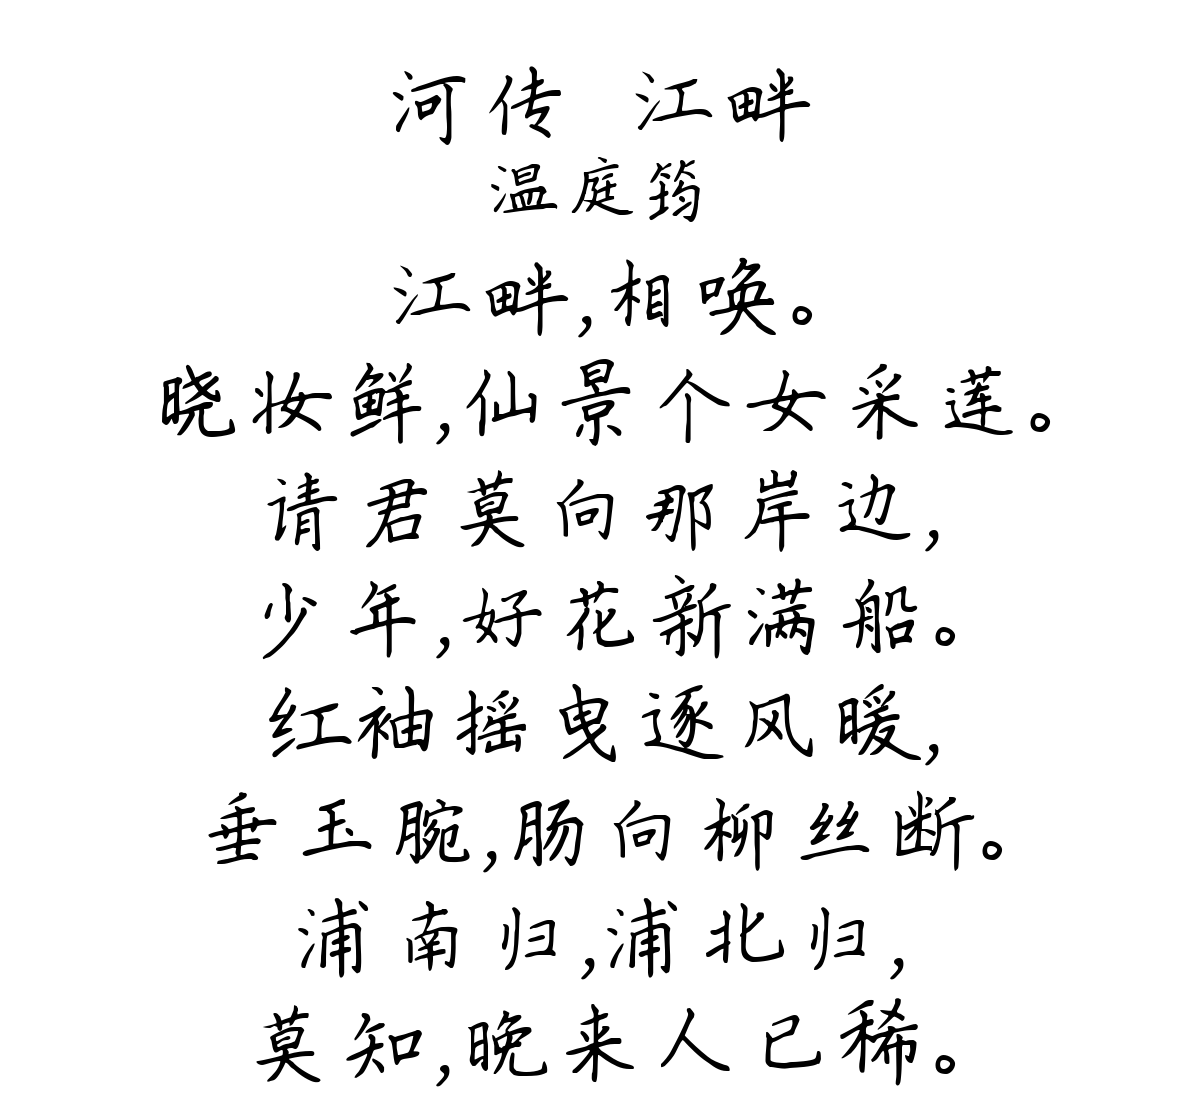 河传 江畔
温庭筠
江畔,相唤。
晓妆鲜,仙景个女采莲。
请君莫向那岸边,
少年,好花新满船。
红袖摇曳逐风暖,
垂玉腕,肠向柳丝断。
浦南归,浦北归,
莫知,晚来人已稀。